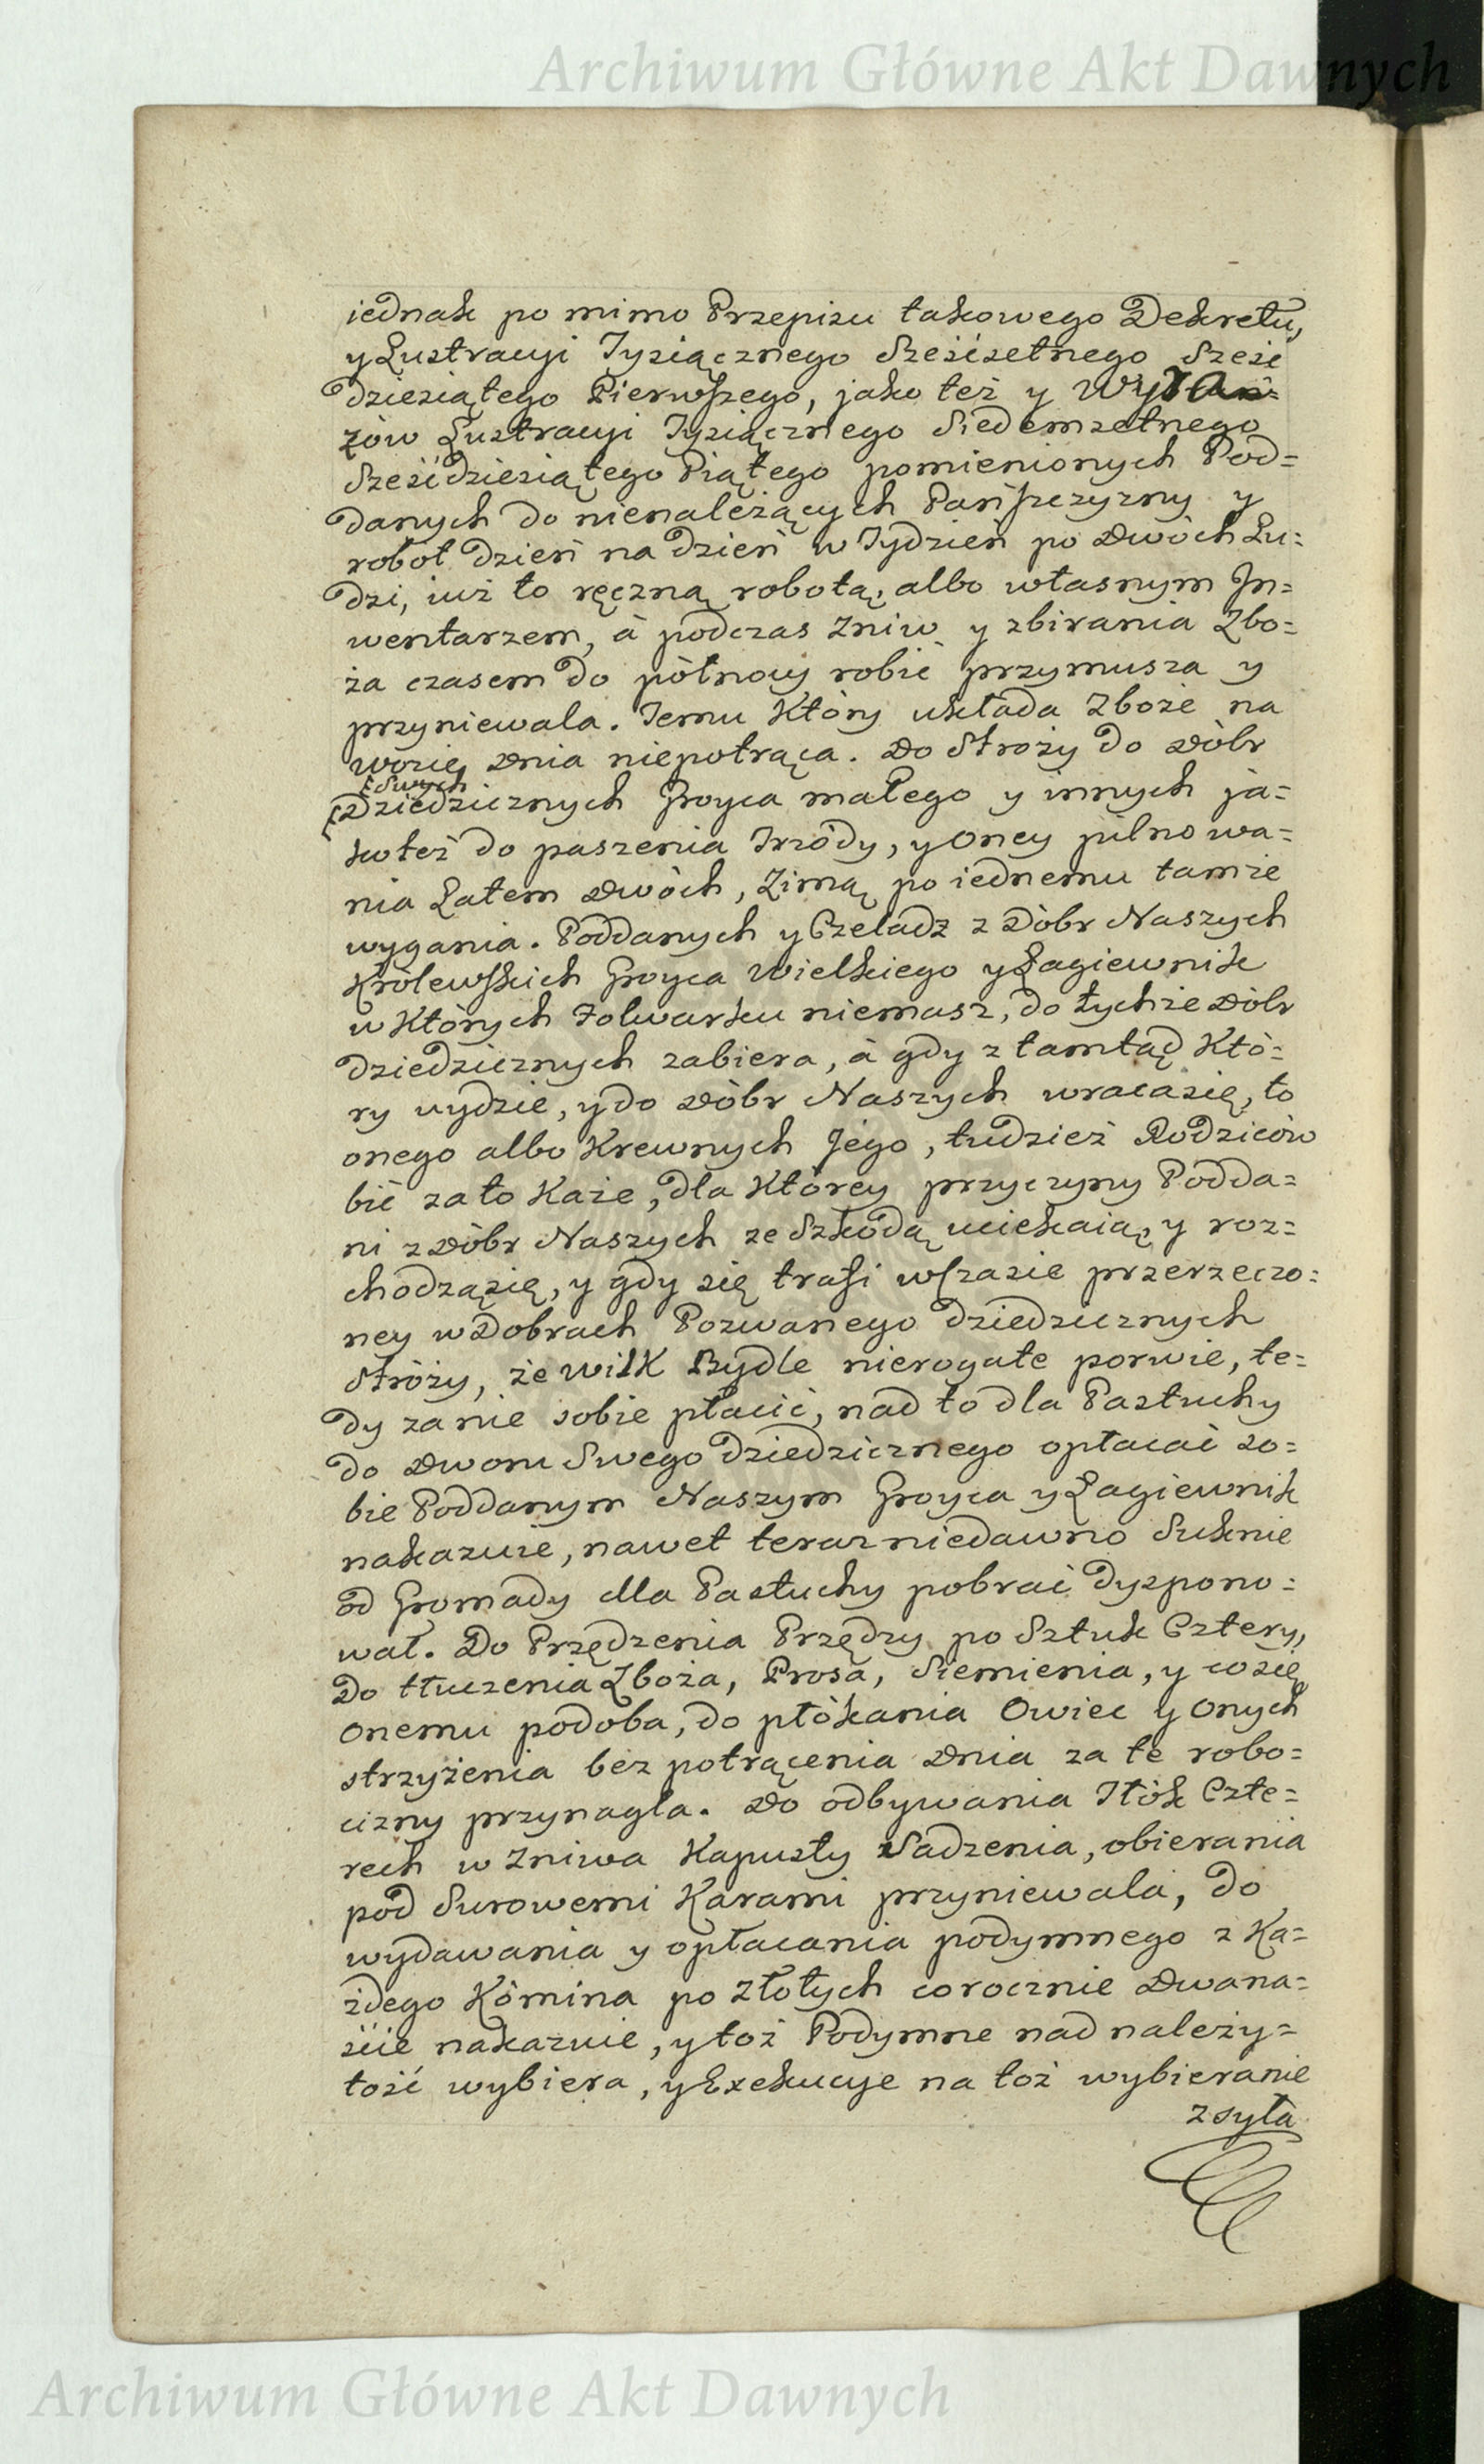 Archiwum Główne Akt Dawnych
iednak po mimo Przepisu takowego Dekretu,
y Lustracyi Tysiącznego Sześćsetnego Sześć
dziesiątego Pierwszego, jako też y
zów Lustracyi Tysiącznego Siedemsetnego
Sześćdziesiątego Piątego pomienionych Pod=
danych do nienależących Pańszczyzny y
robot dzień na dzień w Tydzień po Dwóch Lu=
dzi, iuż to ręczną robotą, albo własnym In=
wentarzem, à podczas Zniw y zbirania Zbo=
ża czasem do pòłnocy robić przymusza y
przyniewala. Temu Który układa Zboże na
wozie, Dnia niepotrąca. Do Stroży do Dòbr
Swych
Dziedzicznych Groyca małego y innych ja=
koteż do paszenia Trzódy, y Oney pilnowa=
nia Latem Dwòch, Zimą po iednemu tamże
wygania. Poddanych y Czeladz z Dòbr Naszych
Królewskich Groyca Wielkiego y Łagiewnik
w Których Folwarku niemasz, do tychże Dòbr
dziedzicznych zabiera, à gdy z tamtąd Któ=
ry uydzie, y do Dòbr Naszych wracasię, to
onego albo Krewnych Jego, tudzież Rodziców
bić zato Każe, dla Którey przyczyny Podda=
ni z Dòbr Naszych ze Szkodą uciekaią, y roz=
chodząsię, y gdy się trafi wczasie przerzeczo=
ney w Dobrach Pozwanego dziedzicznych
Stróży, że wilk Bydle nierogate porwie, te=
dy zanie sobie płacić, nad to dla Pastuchy
do Dworu Swego dziedzicznego opłacać so=
bie Poddanym Naszym Groyca y Łagiewnik
nakazuie, nawet teraz niedawno Suknie
od Gromady dla Pastuchy pobrać dyspono=
wał. Do Przędzenia Przędzy po Sztuk Cztery,
Do tłuczenia Zboża, Prosa, Siemienia, y cosię
onemu podoba, do płókania Owiec y Onych
strzyżenia bez potrącenia Dnia za te robo=
cizny przynagla. Do odbywania Tłòk Czte=
rech w Zniwa Kapusty Sadzenia, obierania
pod Surowemi Karami przyniewala, do
wydawania y opłacania podymnego z Ka=
żdego Kòmina po Złotych corocznie Dwana=
ście nakazuie, y toż Podymne nad należy=
tość wybiera, y Exekucye na toż wybieranie
zsyła
Archiwum Główne Akt Dawnych